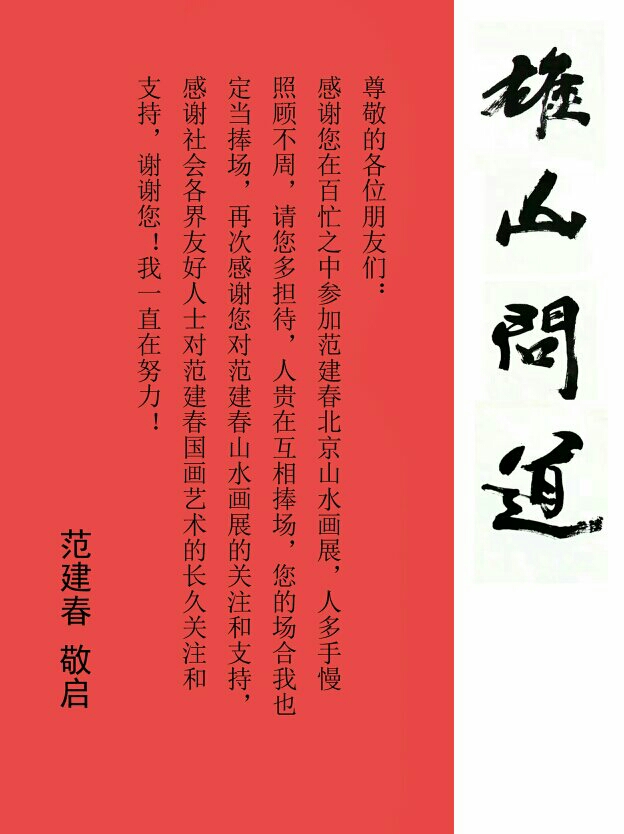 雄山問道
尊敬的各位朋友们：
感谢您在百忙之中参加范建春北京山水画展，人多手慢
照顾不周，请您多担待，人贵在互相捧场，您的场合我也
定当捧场，再次感谢您对范建春山水画展的关注和支持，
感谢社会各界友好人士对范建春国画艺术的长久关注和
支持，谢谢您！我一直在努力！
范建春 敬启